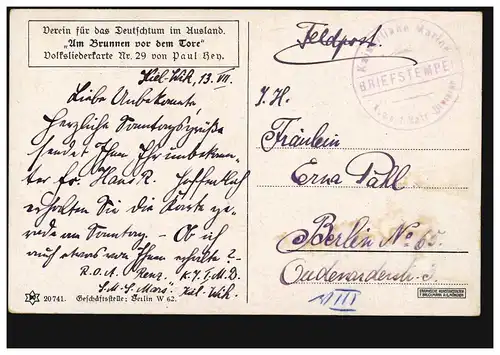 Verein für das Deutschtum im Ausland.
„Am Brunnen vor dem Tore"
Volksliederkarte Nr. 29 von Paul Hey.
Kiel-Wik, 13. VII.
Liebe Unbekannte,
Herzliche Sonntagsgrüße
sendet Ihnen Ihr unbekann-
ter Fr. Hans R. Hoffentlich
erhalten Sie die Karte ge-
rade am Sonntag. – Ob ich
auch etwas von Ihnen erhalte?
S.M.S. Mars. Kiel-Wik.
20741. Geschäftsstelle: Berlin W 62.
Feldpost.
Kaiserliche Marine
BRIEFSTEMPEL
S. H.
Fräulein
Erna Pahl
Berlin No 65.
Oudenarderstr.
III